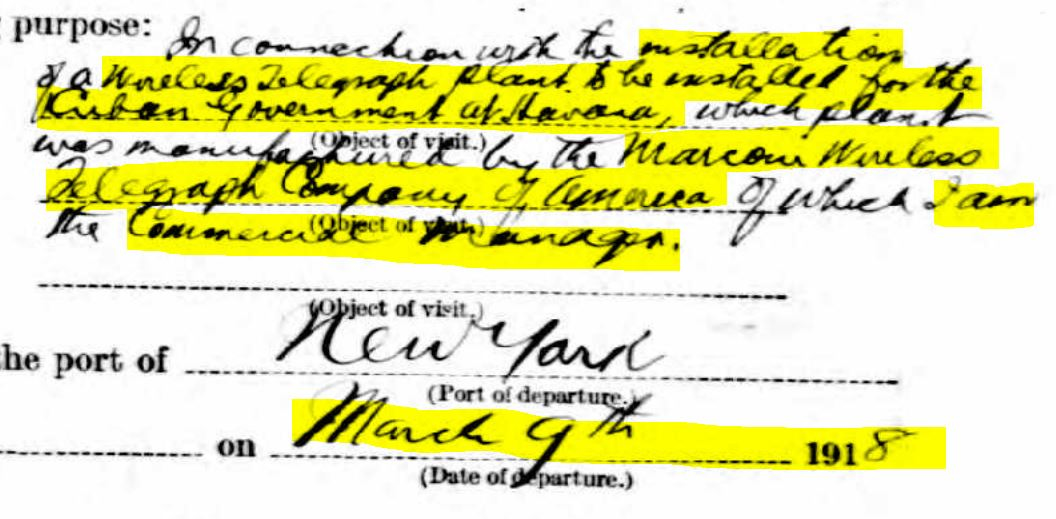 purpose: In connection with the installation
of a Wireless Telegraph plant to be installed for the
Cuban Government at Havana, which plant
(Object of visit.)
was manufactured by the Marconi Wireless
Telegraph Company of America of which I am
(Object of visit.)
the Commercial Manager.
(Object of visit.)
the port of New York
(Port of departure.)
on March 9th 1918
(Date of departure.)